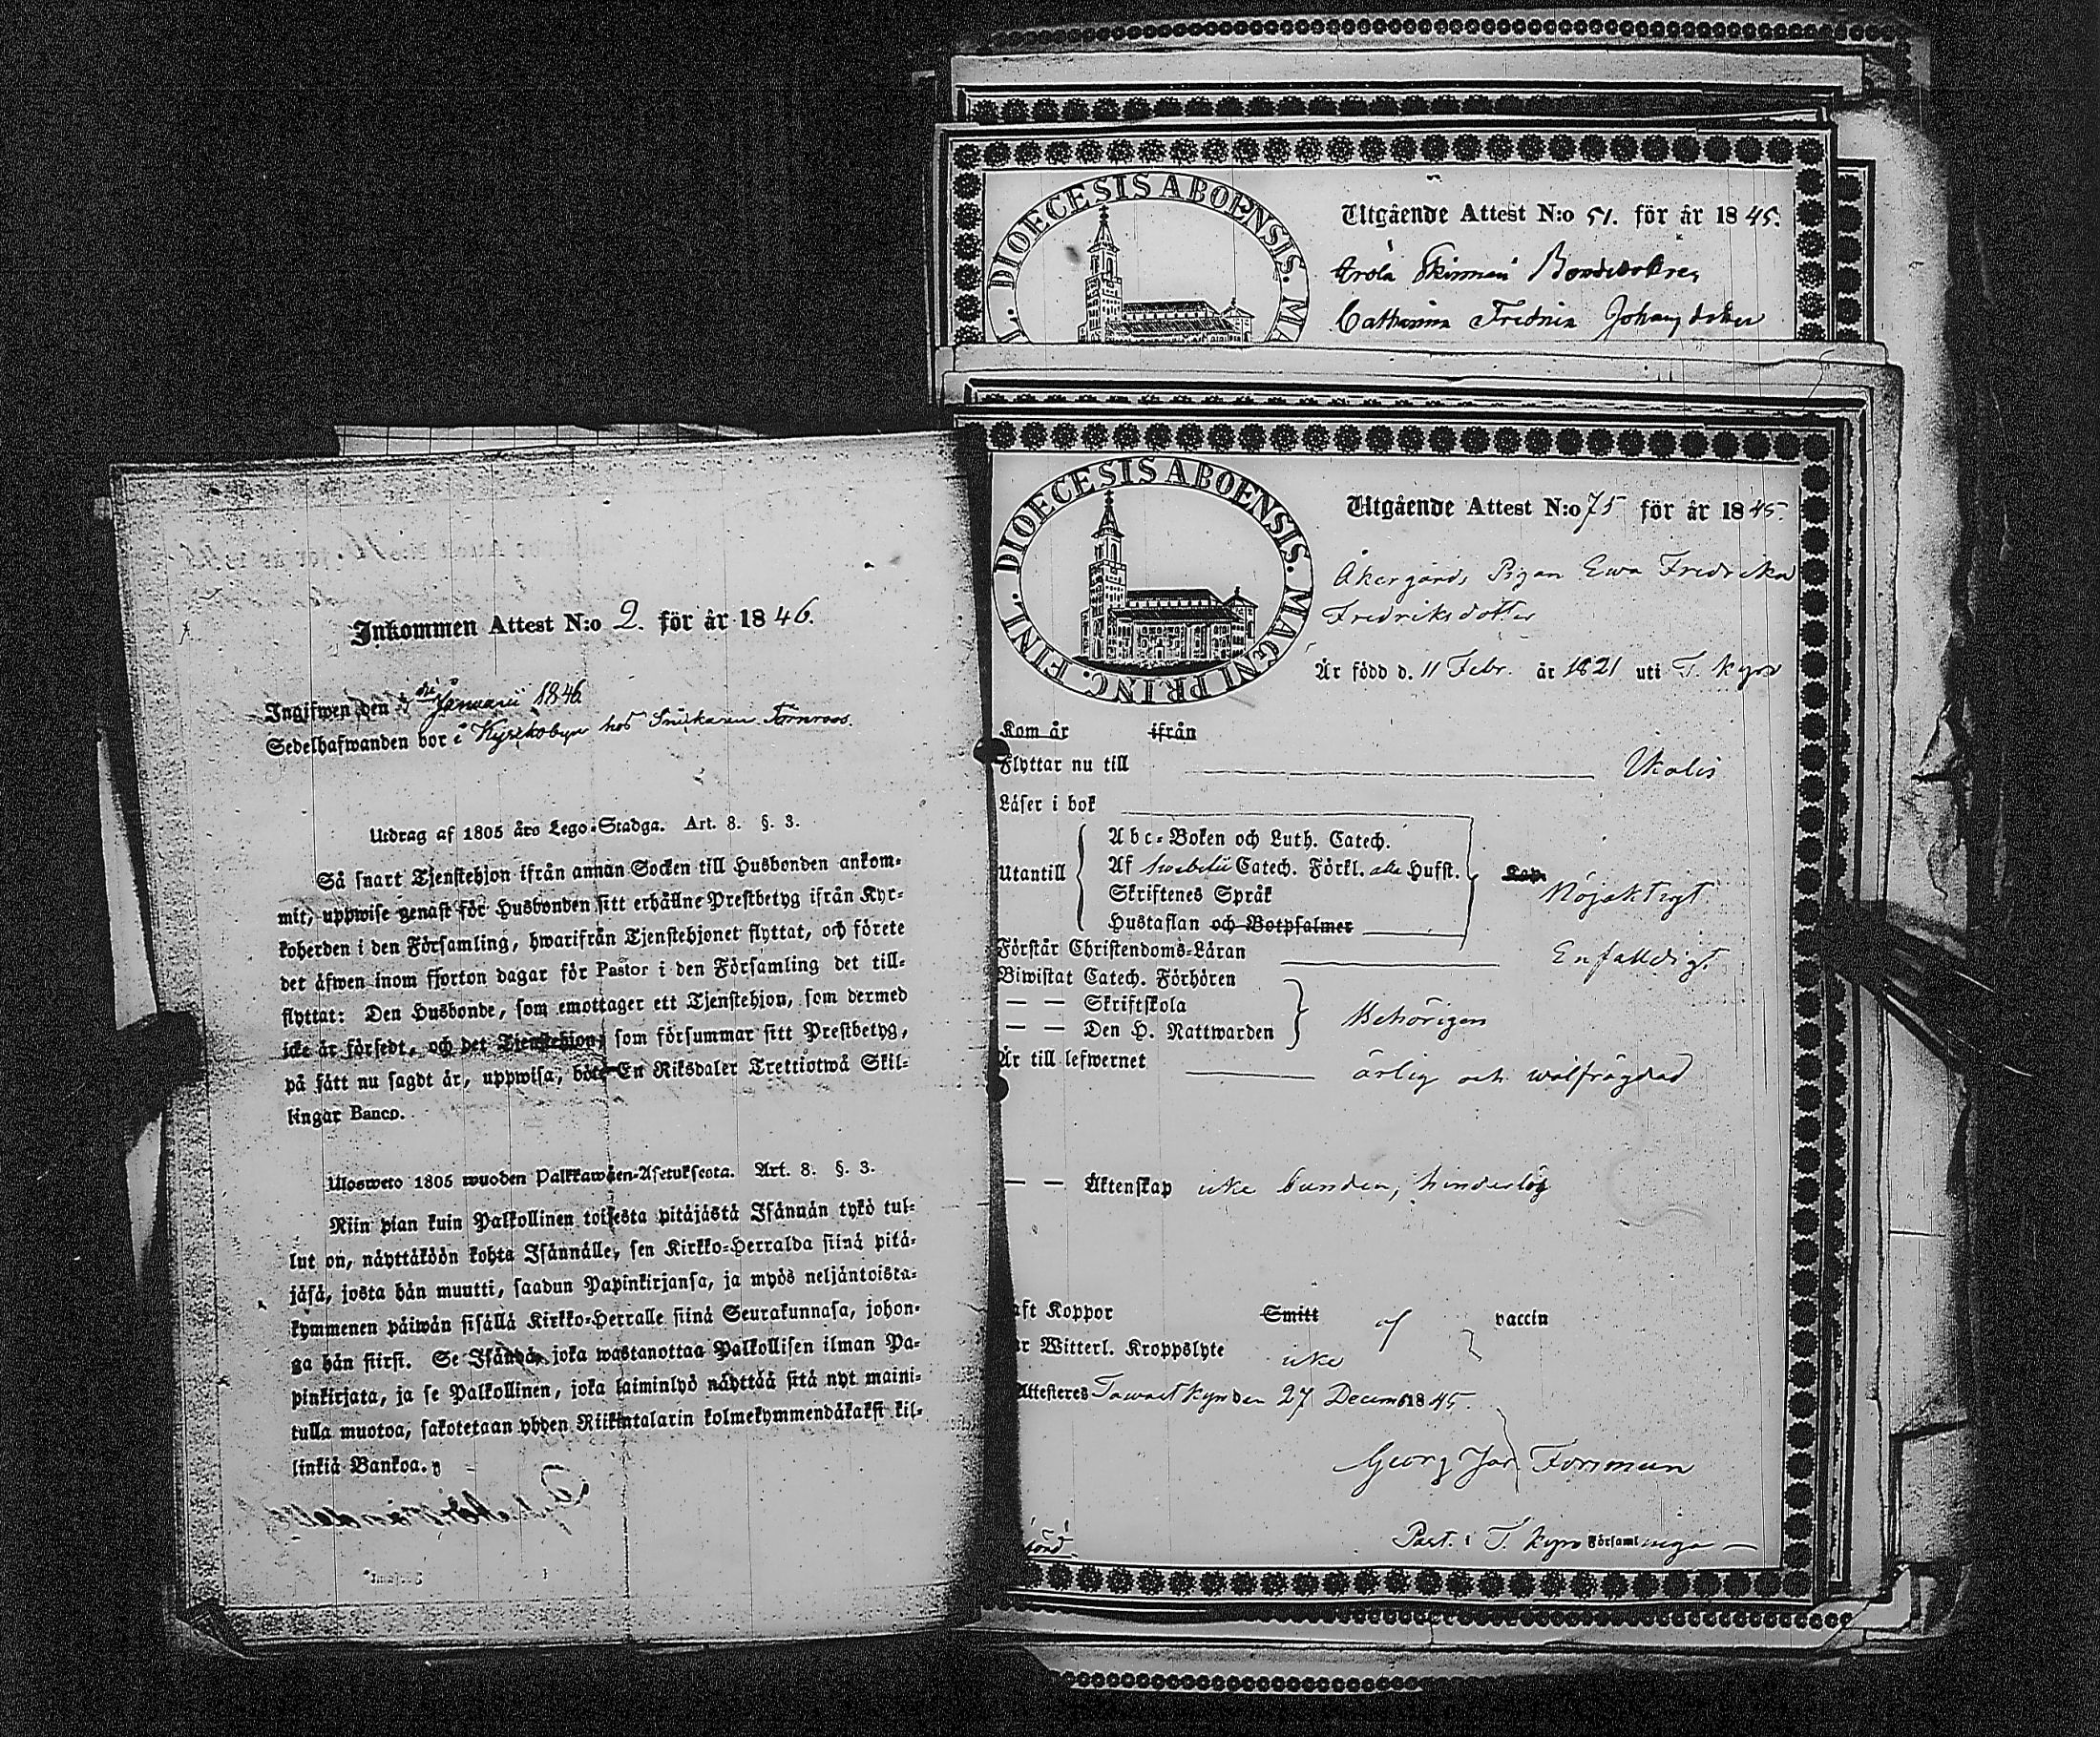 Inkommen Attest N:o 2. för år 1846.
Ingifwen den Januarii 1846
Sedelhafwanden bor i Kyrckobyn hos Snickaren Törnroos.
Utdrag af 1805 års Lego-Stadga. Art. 8. §. 3.
Så snart Tjenstehjon ifrån annan Socken till Husbonden ankom-
mit, uppwise genast för Husbonden sitt erhållne Prestbetyg ifrån Kyr-
koherden i den Församling, hwarifrån Tjenstehjonet flyttat, och förete
det äfwen inom fjorton dagar för Pastor i den Församling det till-
flyttat: Den Husbonde, som emottager ett Tjenstehjon, som dermed
icke är försedt, och det Tjenstehjon, som försummar sitt Prestbetyg,
på sätt nu sagdt är, uppwisa, böte En Riksdaler Trettiotwå Skil-
lingar Banco.
Ulosweto 1805 wuoden Palkkawäen-Asetuksesta. Art. 8. §. 3.
Niin pian kuin Palkollinen toisesta pitäjästä Isännän tykö tul-
lut on, näyttäköön kohta Isännälle, sen Kirkko-Herralda siinä pitä-
jäsä, josta hän muutti, saadun Papinkirjansa, ja myös neljäntoista-
kymmenen päiwän sisällä Kirkko-Herralle siinä Seurakunnasa, johon-
ga hän siirsi. Se Isändä, joka wastanottaa Palkollisen ilman Pa-
pinkirjata, ja se Palkollinen, joka laiminlyö näyttää sitä nyt maini-
tulla muotoa, sakotetaan yhden Riikintalarin kolmekymmendäkaksi kil-
linkiä Bankoa.
DIOECESIS ABOENSIS. MA
Utgående Attest N:o 51. för år 1845.
Bondedottren
Catharina Johansdotter
DIOECESIS ABOENSIS. MAGNI PRINC. FINL.
Utgående Attest N:o 75 för år 1845.
Åkergårds Pigan Ewa Fredrika
Fredriksdotter
Är född d. 11 Febr. år 1821 uti T. Kyro
Kom år ifrån
Flyttar nu till Ikalis
Läser i bok
Abc-Boken och Luth. Catech.
Utantill Af Swebelii Catech. Förkl. alla Hufst. Cap.
Skriftenes Språk Nöjaktigt
Hustaflan och Botpsalmer
Förstår Christendoms-Läran Enfaldigt
Biwistat Catech. Förhören
— — Skriftskola
— — Den H. Nattwarden Behörigen
Är till lefwernet ärlig och wälfrägdad
— — Äktenskap icke bunden, hinderlös
aft Koppor Smitt af vaccin
är Witterl. Kroppslyte icke
Attesteras Tawastkyro den 27 Decemb 1845.
Georg Jac Forsman
Past. i T. Kyro Församlinga